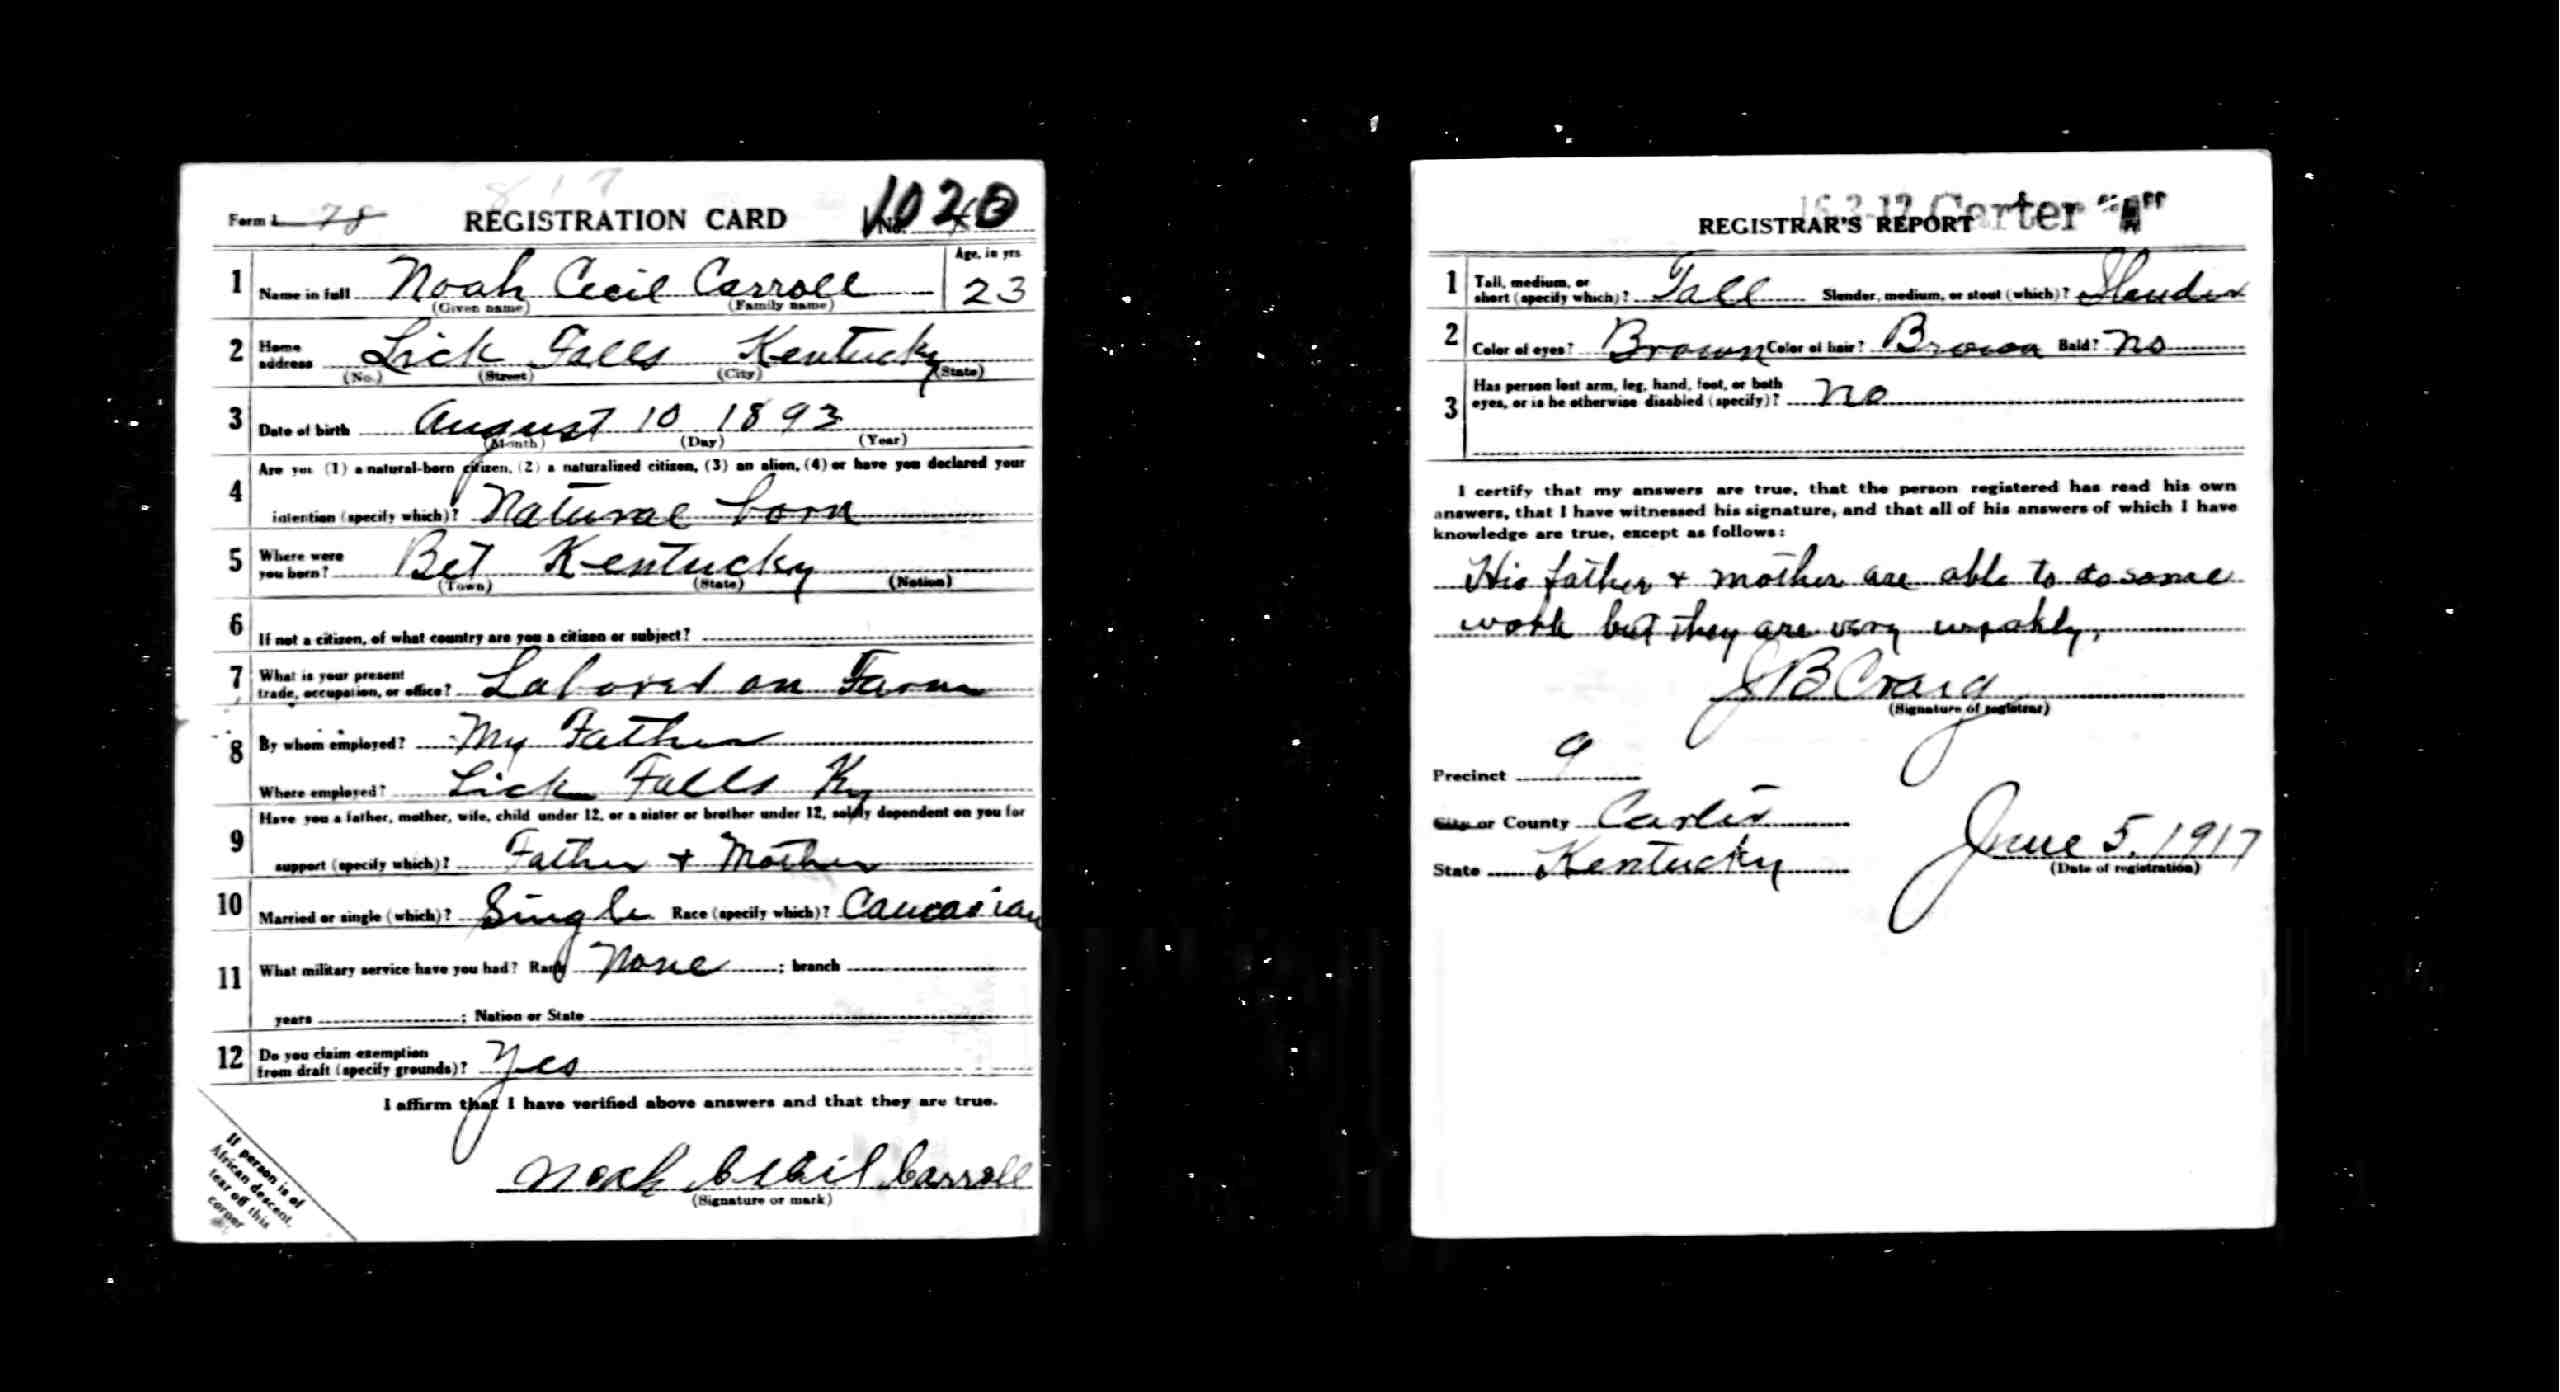 Form 1 78 REGISTRATION CARD No.
1 Name in full Noah Cecil Carroll Age, in yrs 23
(Given name) (Family name)
2 Home address Lick Falls Kentucky
(No.) (Street) (City) (State)
3 Date of birth August 10 1893
(Month) (Day) (Year)
4 Are you (1) a natural-born citizen, (2) a naturalized citizen, (3) an alien, (4) or have you declared your
intention (specify which)? Natural born
5 Where were you born? Bet Kentucky
(Town) (State) (Nation)
6 If not a citizen, of what country are you a citizen or subject?
7 What is your present trade, occupation, or office? Laborer on Farm
8 By whom employed? My Father
Where employed? Lick Falls Ky
9 Have you a father, mother, wife, child under 12, or a sister or brother under 12, solely dependent on you for
support (specify which)? Father + Mother
10 Married or single (which)? Single Race (specify which)? Caucasian
11 What military service have you had? Rank None ; branch
years ; Nation or State
12 Do you claim exemption from draft (specify grounds)? Yes
I affirm that I have verified above answers and that they are true.
Noah Cecil Carroll
(Signature or mark)
If person is of
African descent,
tear off this
corner
16-3-12 Carter "A"
REGISTRAR'S REPORT
1 Tall, medium, or short (specify which)? Tall Slender, medium, or stout (which)? Slender
2 Color of eyes? Brown Color of hair? Brown Bald? No
3 Has person lost arm, leg, hand, foot, or both eyes, or is he otherwise disabled (specify)? No
I certify that my answers are true, that the person registered has read his own
answers, that I have witnessed his signature, and that all of his answers of which I have
knowledge are true, except as follows:
His father + mother are able to do some
work but they are very weakly,
J B Craig
(Signature of registrar)
Precinct 9
City or County Carter
State Kentucky
June 5, 1917
(Date of registration)